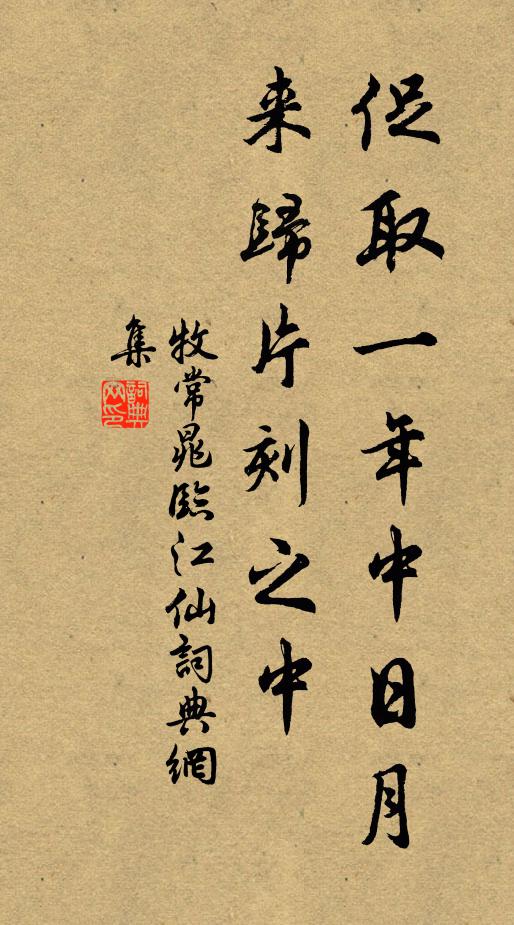 促取一年中日月
来歸片刻之中
牧常晁臨江仙詞典網
集
詞典網印